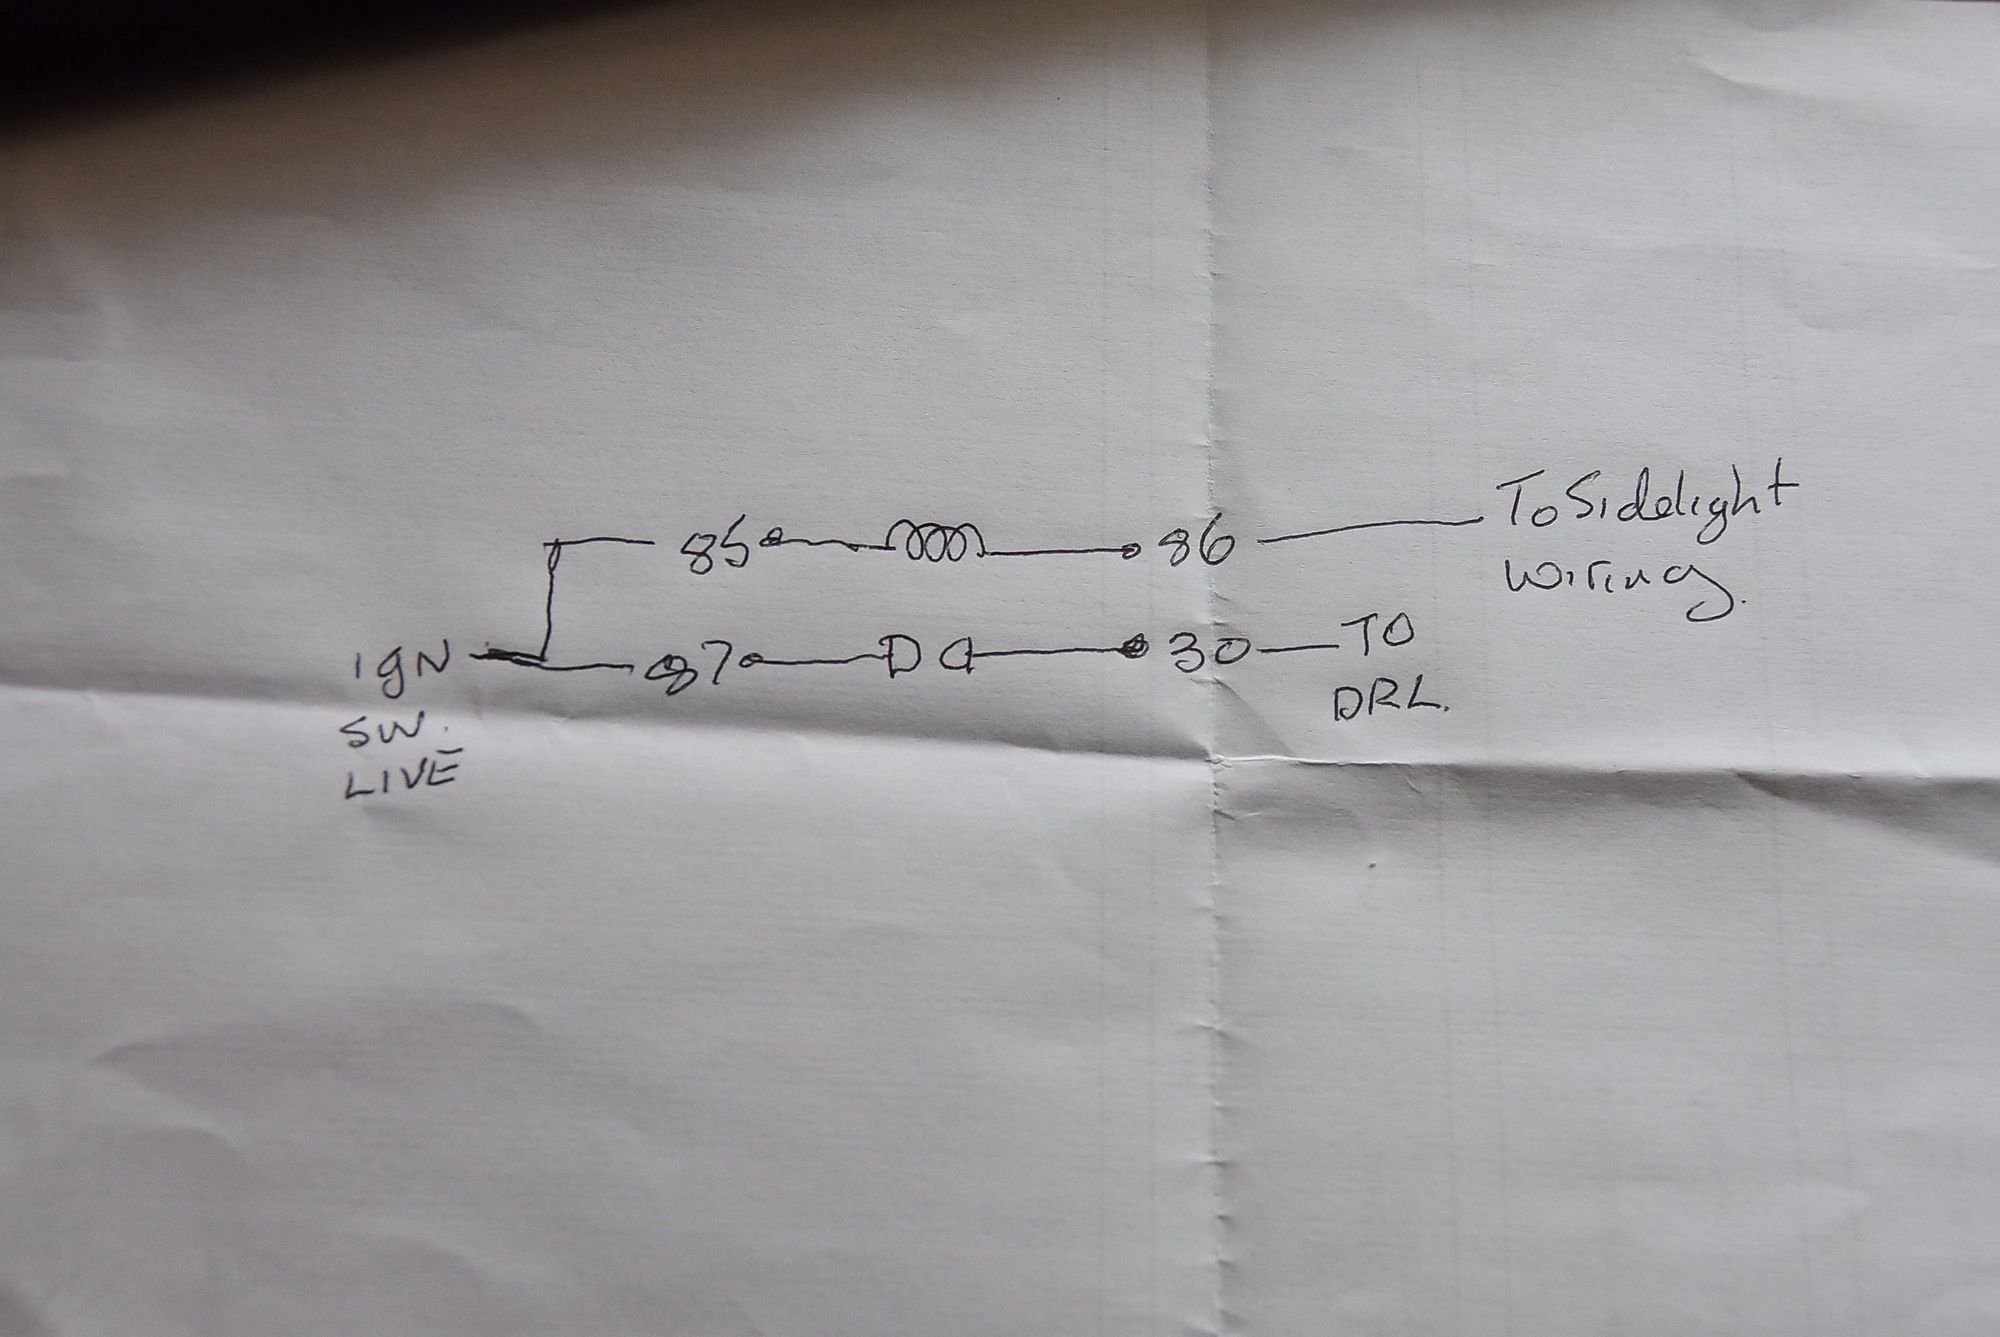 To Sidelight
Wiring.
85 86
IgN 87 30 TO
SW. DRL.
LIVE